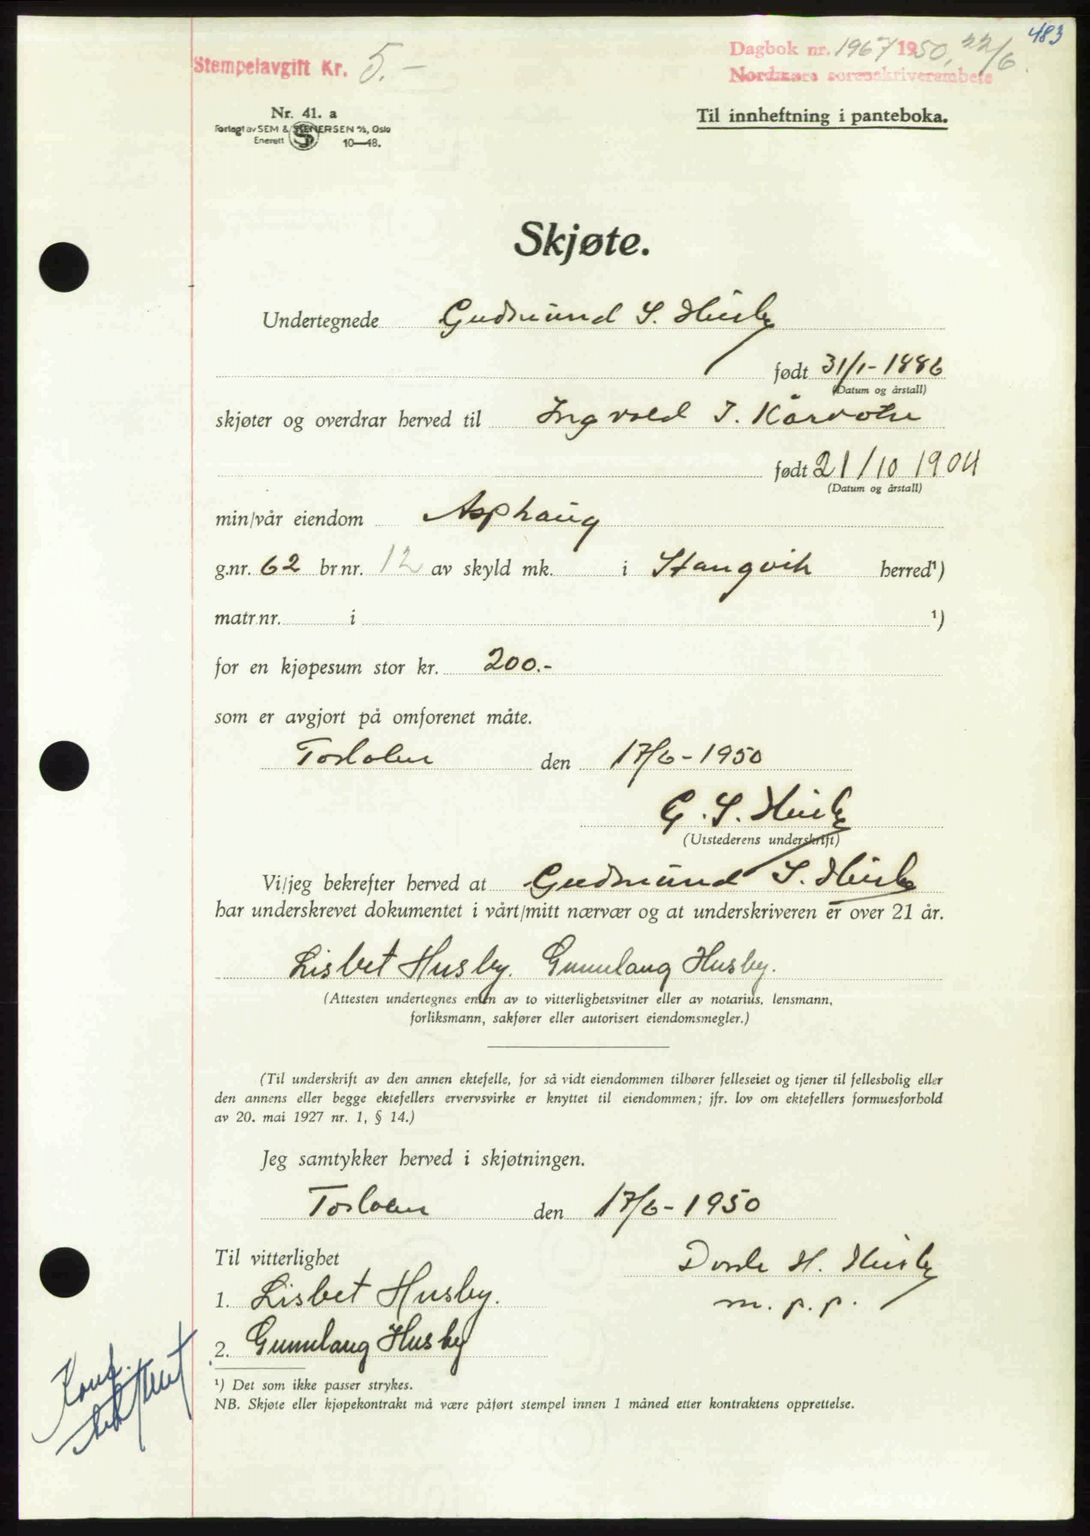 483
Stempelavgift Kr. 5.-
Dagbok nr. 1967 1950, 22/6
Nordmøre sorenskriverembete
Nr. 41. a
Forlagt av SEM & STENERSEN A/S, Oslo
Enerett 10—48.
Til innheftning i panteboka.
Skjøte.
Undertegnede Gudmund S. Husby
født 31/1-1886
(Datum og årstall)
skjøter og overdrar herved til Ingvald J. Kårvatn
født 21/10 1904
(Datum og årstall)
min/vår eiendom Asphaug
g.nr. 62 br.nr. 12 av skyld mk. i Stangvik herred¹)
matr.nr. i ¹)
for en kjøpesum stor kr. 200.-
som er avgjort på omforenet måte.
den 17/6-1950
G. S. Husby
(Utstederens underskrift)
Vi/jeg bekrefter herved at Gudmund S. Husby
har underskrevet dokumentet i vårt/mitt nærvær og at underskriveren er over 21 år.
Lisbet Husby. Gunnlaug Husby.
(Attesten undertegnes enten av to vitterlighetsvitner eller av notarius, lensmann,
forliksmann, sakfører eller autorisert eiendomsmegler.)
(Til underskrift av den annen ektefelle, for så vidt eiendommen tilhører felleseiet og tjener til fellesbolig eller
den annens eller begge ektefellers ervervsvirke er knyttet til eiendommen; jfr. lov om ektefellers formuesforhold
av 20. mai 1927 nr. 1, § 14.)
Jeg samtykker herved i skjøtningen.
den 17/6-1950
Til vitterlighet
H. Husby
m. p. p.
1. Lisbet Husby.
2. Gunnlaug Husby
¹) Det som ikke passer strykes.
NB. Skjøte eller kjøpekontrakt må være påført stempel innen 1 måned etter kontraktens opprettelse.
Konf.